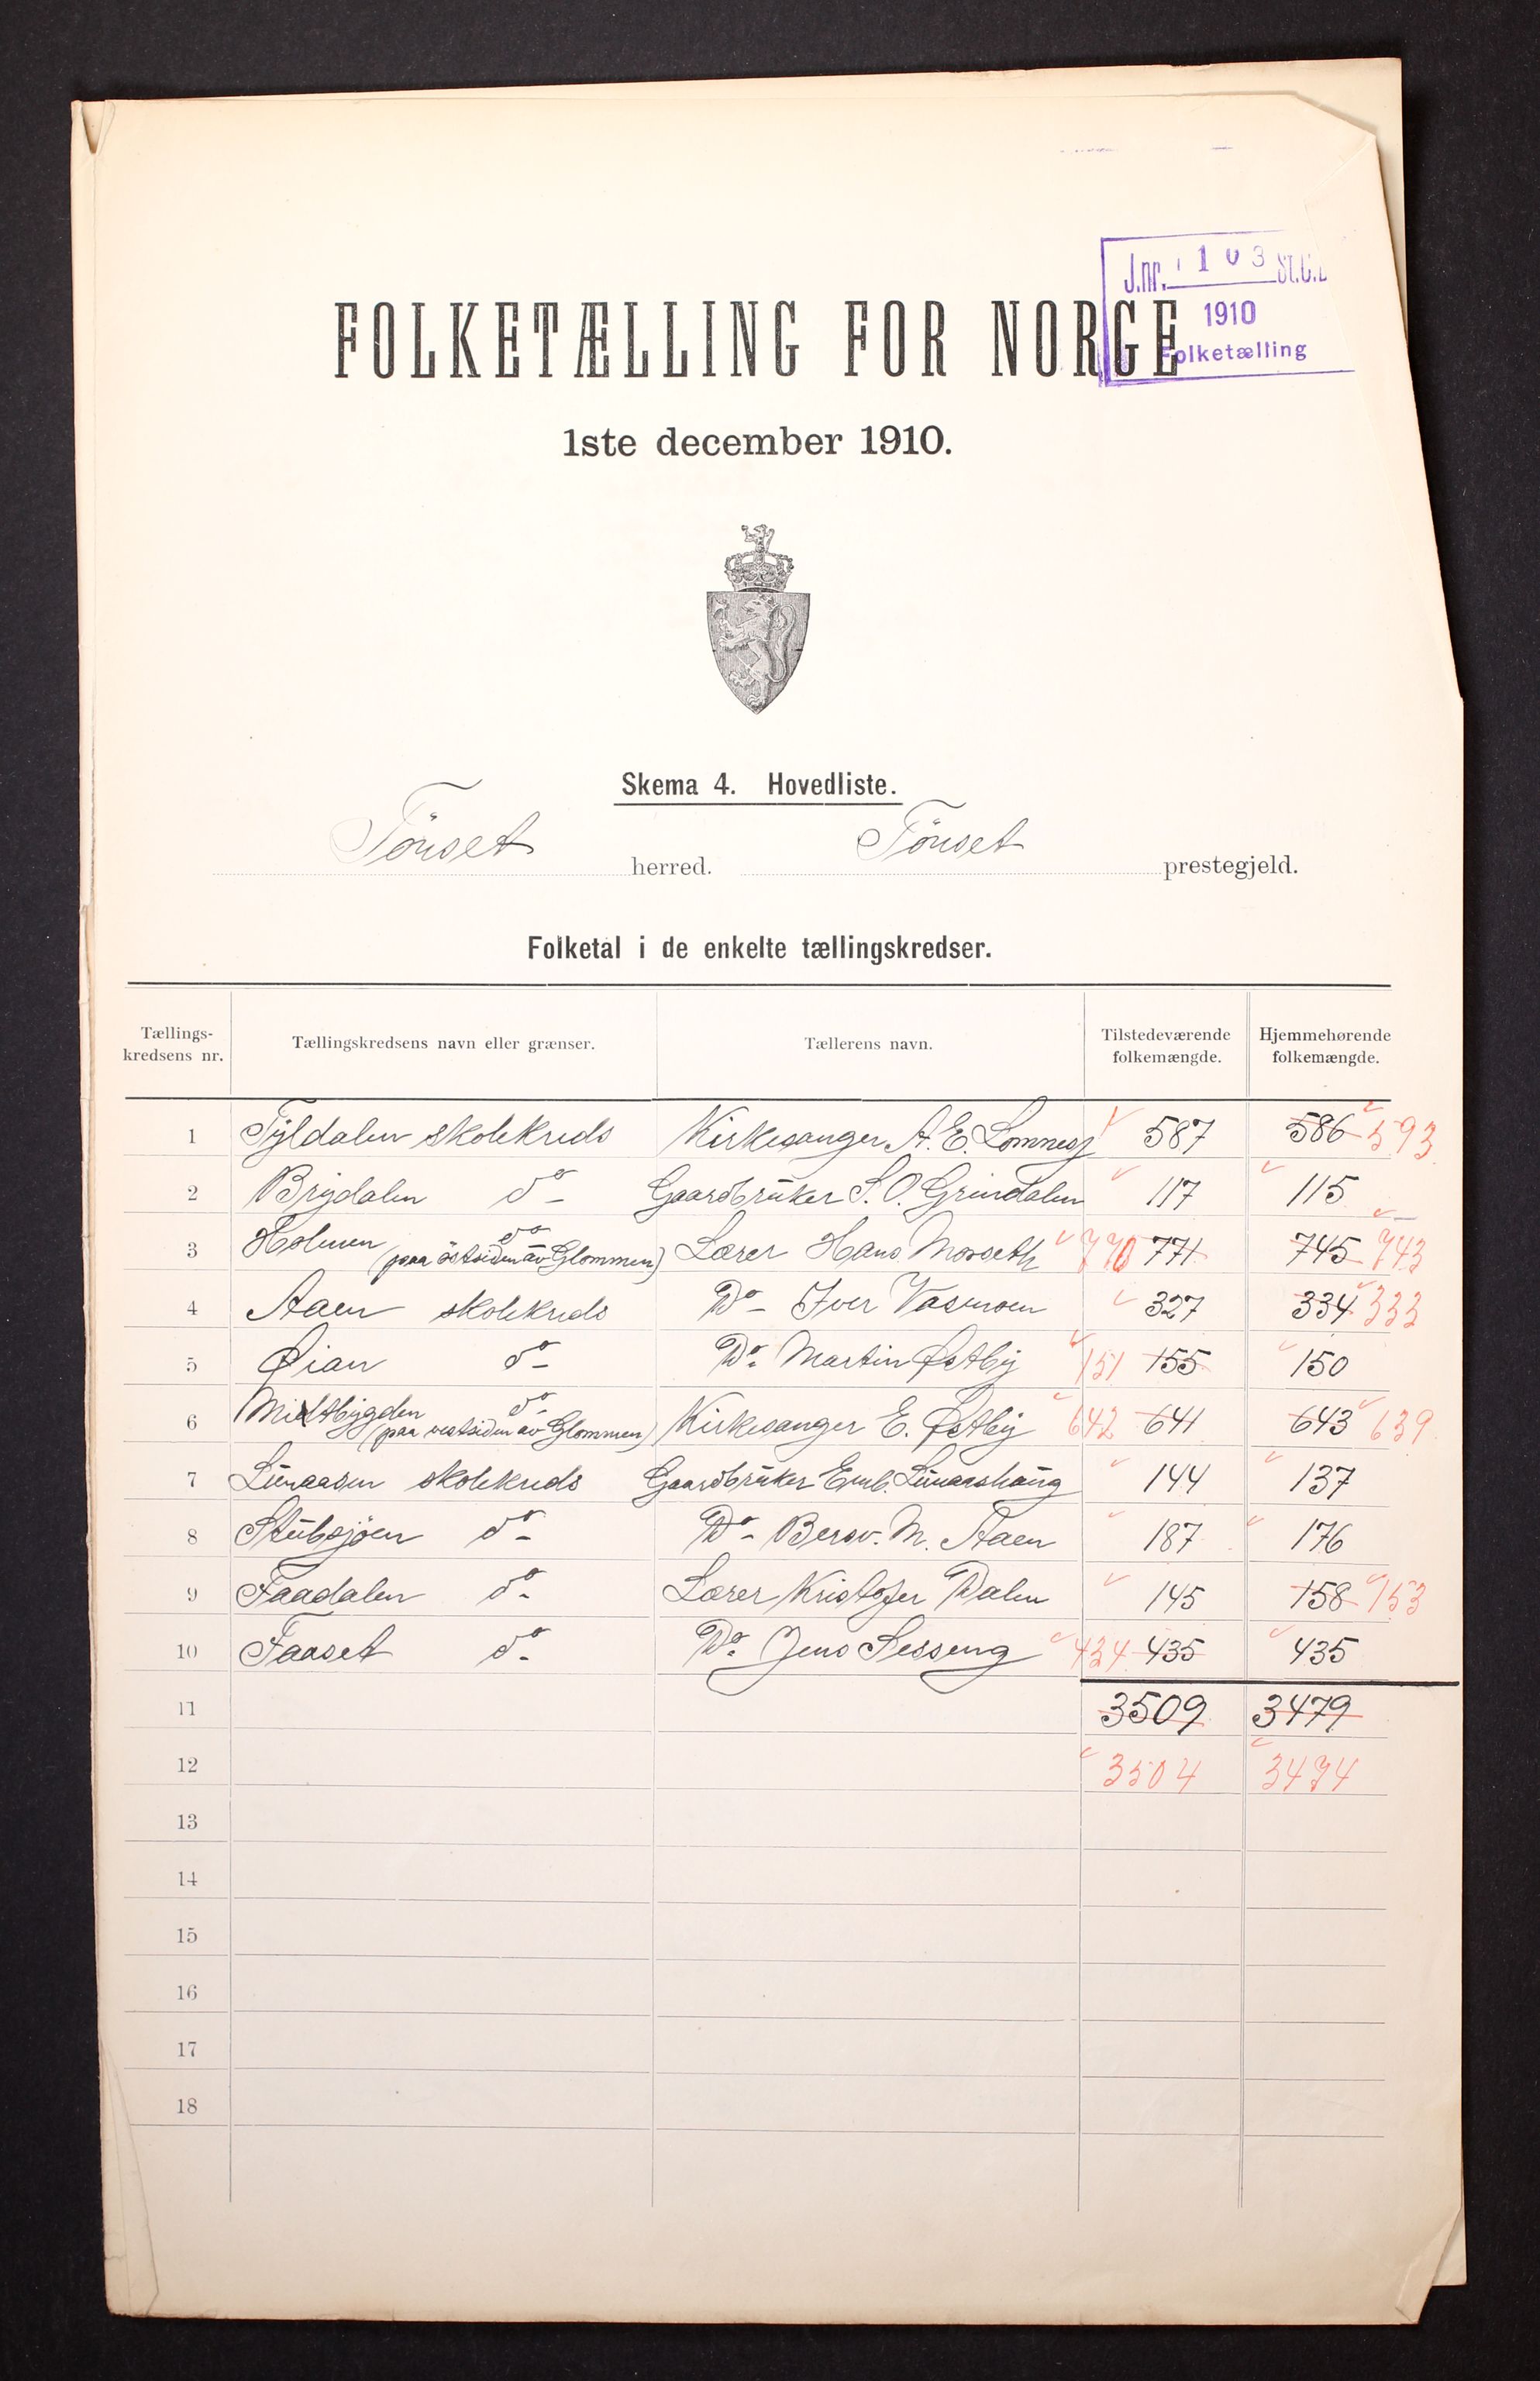 J.nr. 103 St.C.B.
1910
Folketælling
FOLKETÆLLING FOR NORGE
1ste december 1910.
Skema 4. Hovedliste.
Tönset herred. Tönset prestegjeld.
Folketal i de enkelte tællingskredser.
Tællings-kredsens nr. Tællingskredsens navn eller grænser. Tællerens navn. Tilstedeværende folkemængde. Hjemmehørende folkemængde.
1 Tyldalen skolekreds Kirkesanger A. E. Lomnesj 587 586 593
2 Brydalen do- Gaardbruker S. O. Grindalen 117 115
3 Holmen do (paa östsiden av Glommen) Lærer Hans Morseth 770 771 745 743
4 Aaen skolekreds Do- Iver Vasmoen 327 334 333
5 Øian do- Do- Martin Østby 151 155 150
6 Midtbygden do- (paa vestsiden av Glommen) Kirkesanger E. Østby 642 641 643 639
7 Lunaasen skolekreds Gaardbruker Emb. Lunaashaug 144 137
8 Stubsjöen do- Do- Bersv. M. Aaen 187 176
9 Faadalen do- Lærer Kristofer Dalen 145 158 153
10 Faaset do- Do- Jens Sesseng 434 435 435
11 3509 3479
12 3504 3474
13
14
15
16
17
18